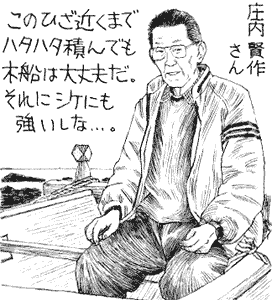 庄内 賢作
さん
このひざ近くまで
ハタハタ積んでも
木船は大丈夫だ。
それにシケにも
強いしな…。